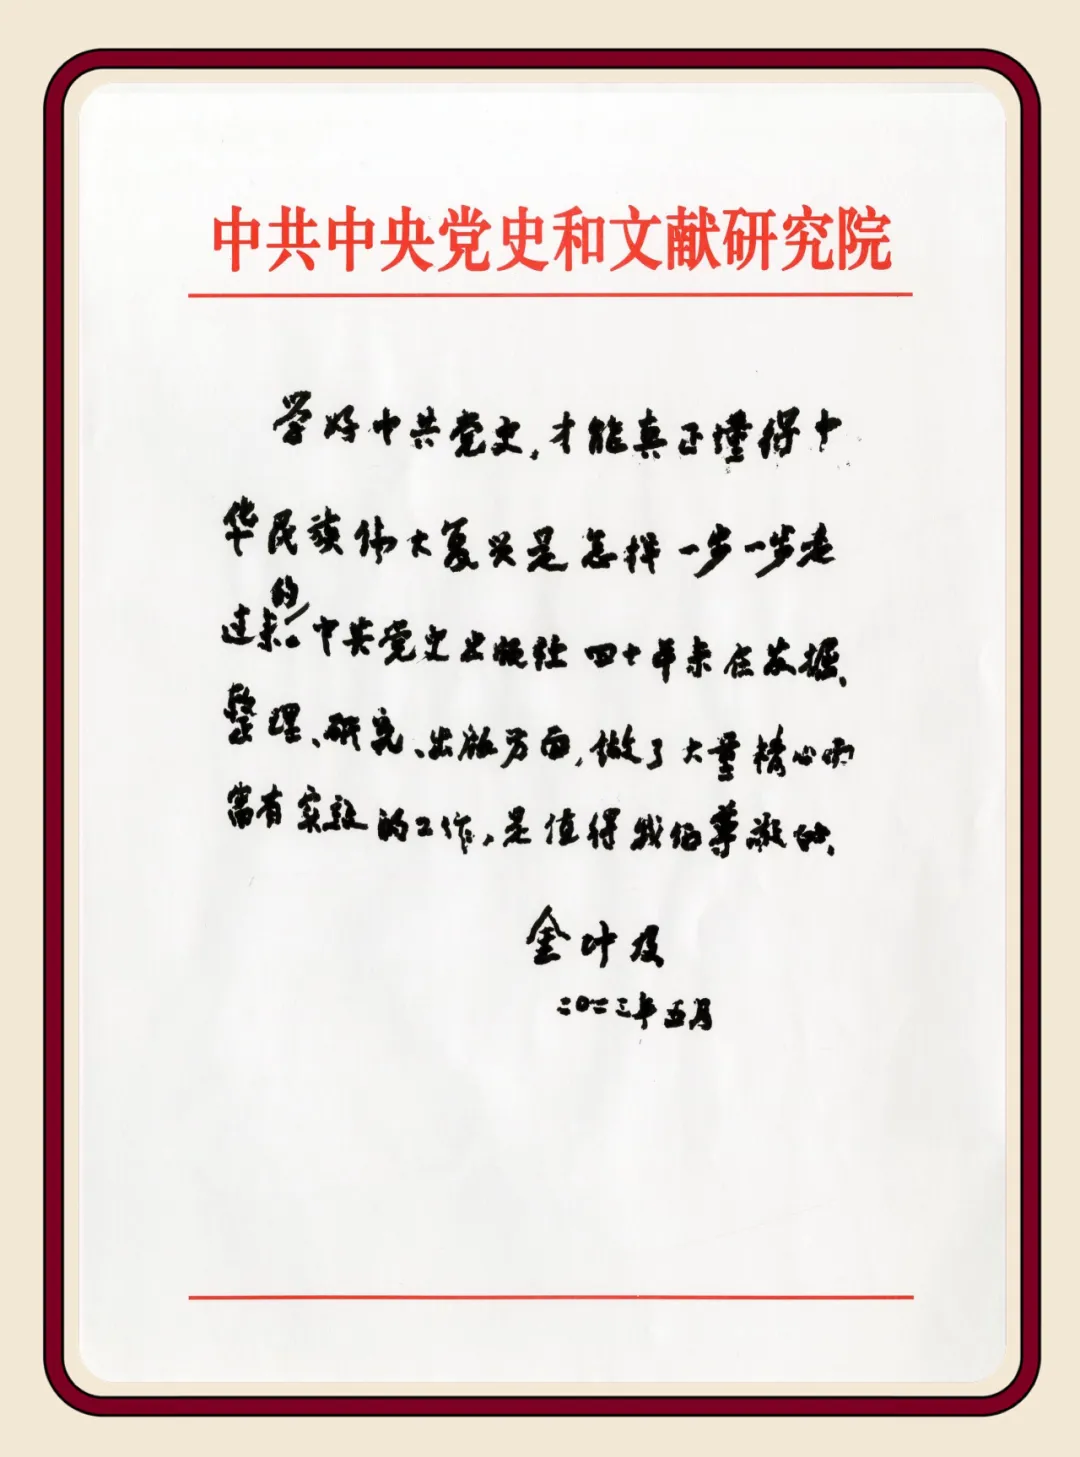 中共中央党史和文献研究院
学好中共党史，才能真正懂得中
华民族伟大复兴是怎样一步一步走
过来的。中共党史出版社四十年来在发掘、
整理、研究、出版方面，做了大量精心而
富有实效的工作，是值得我们尊敬的。
金冲及
二〇二三年五月